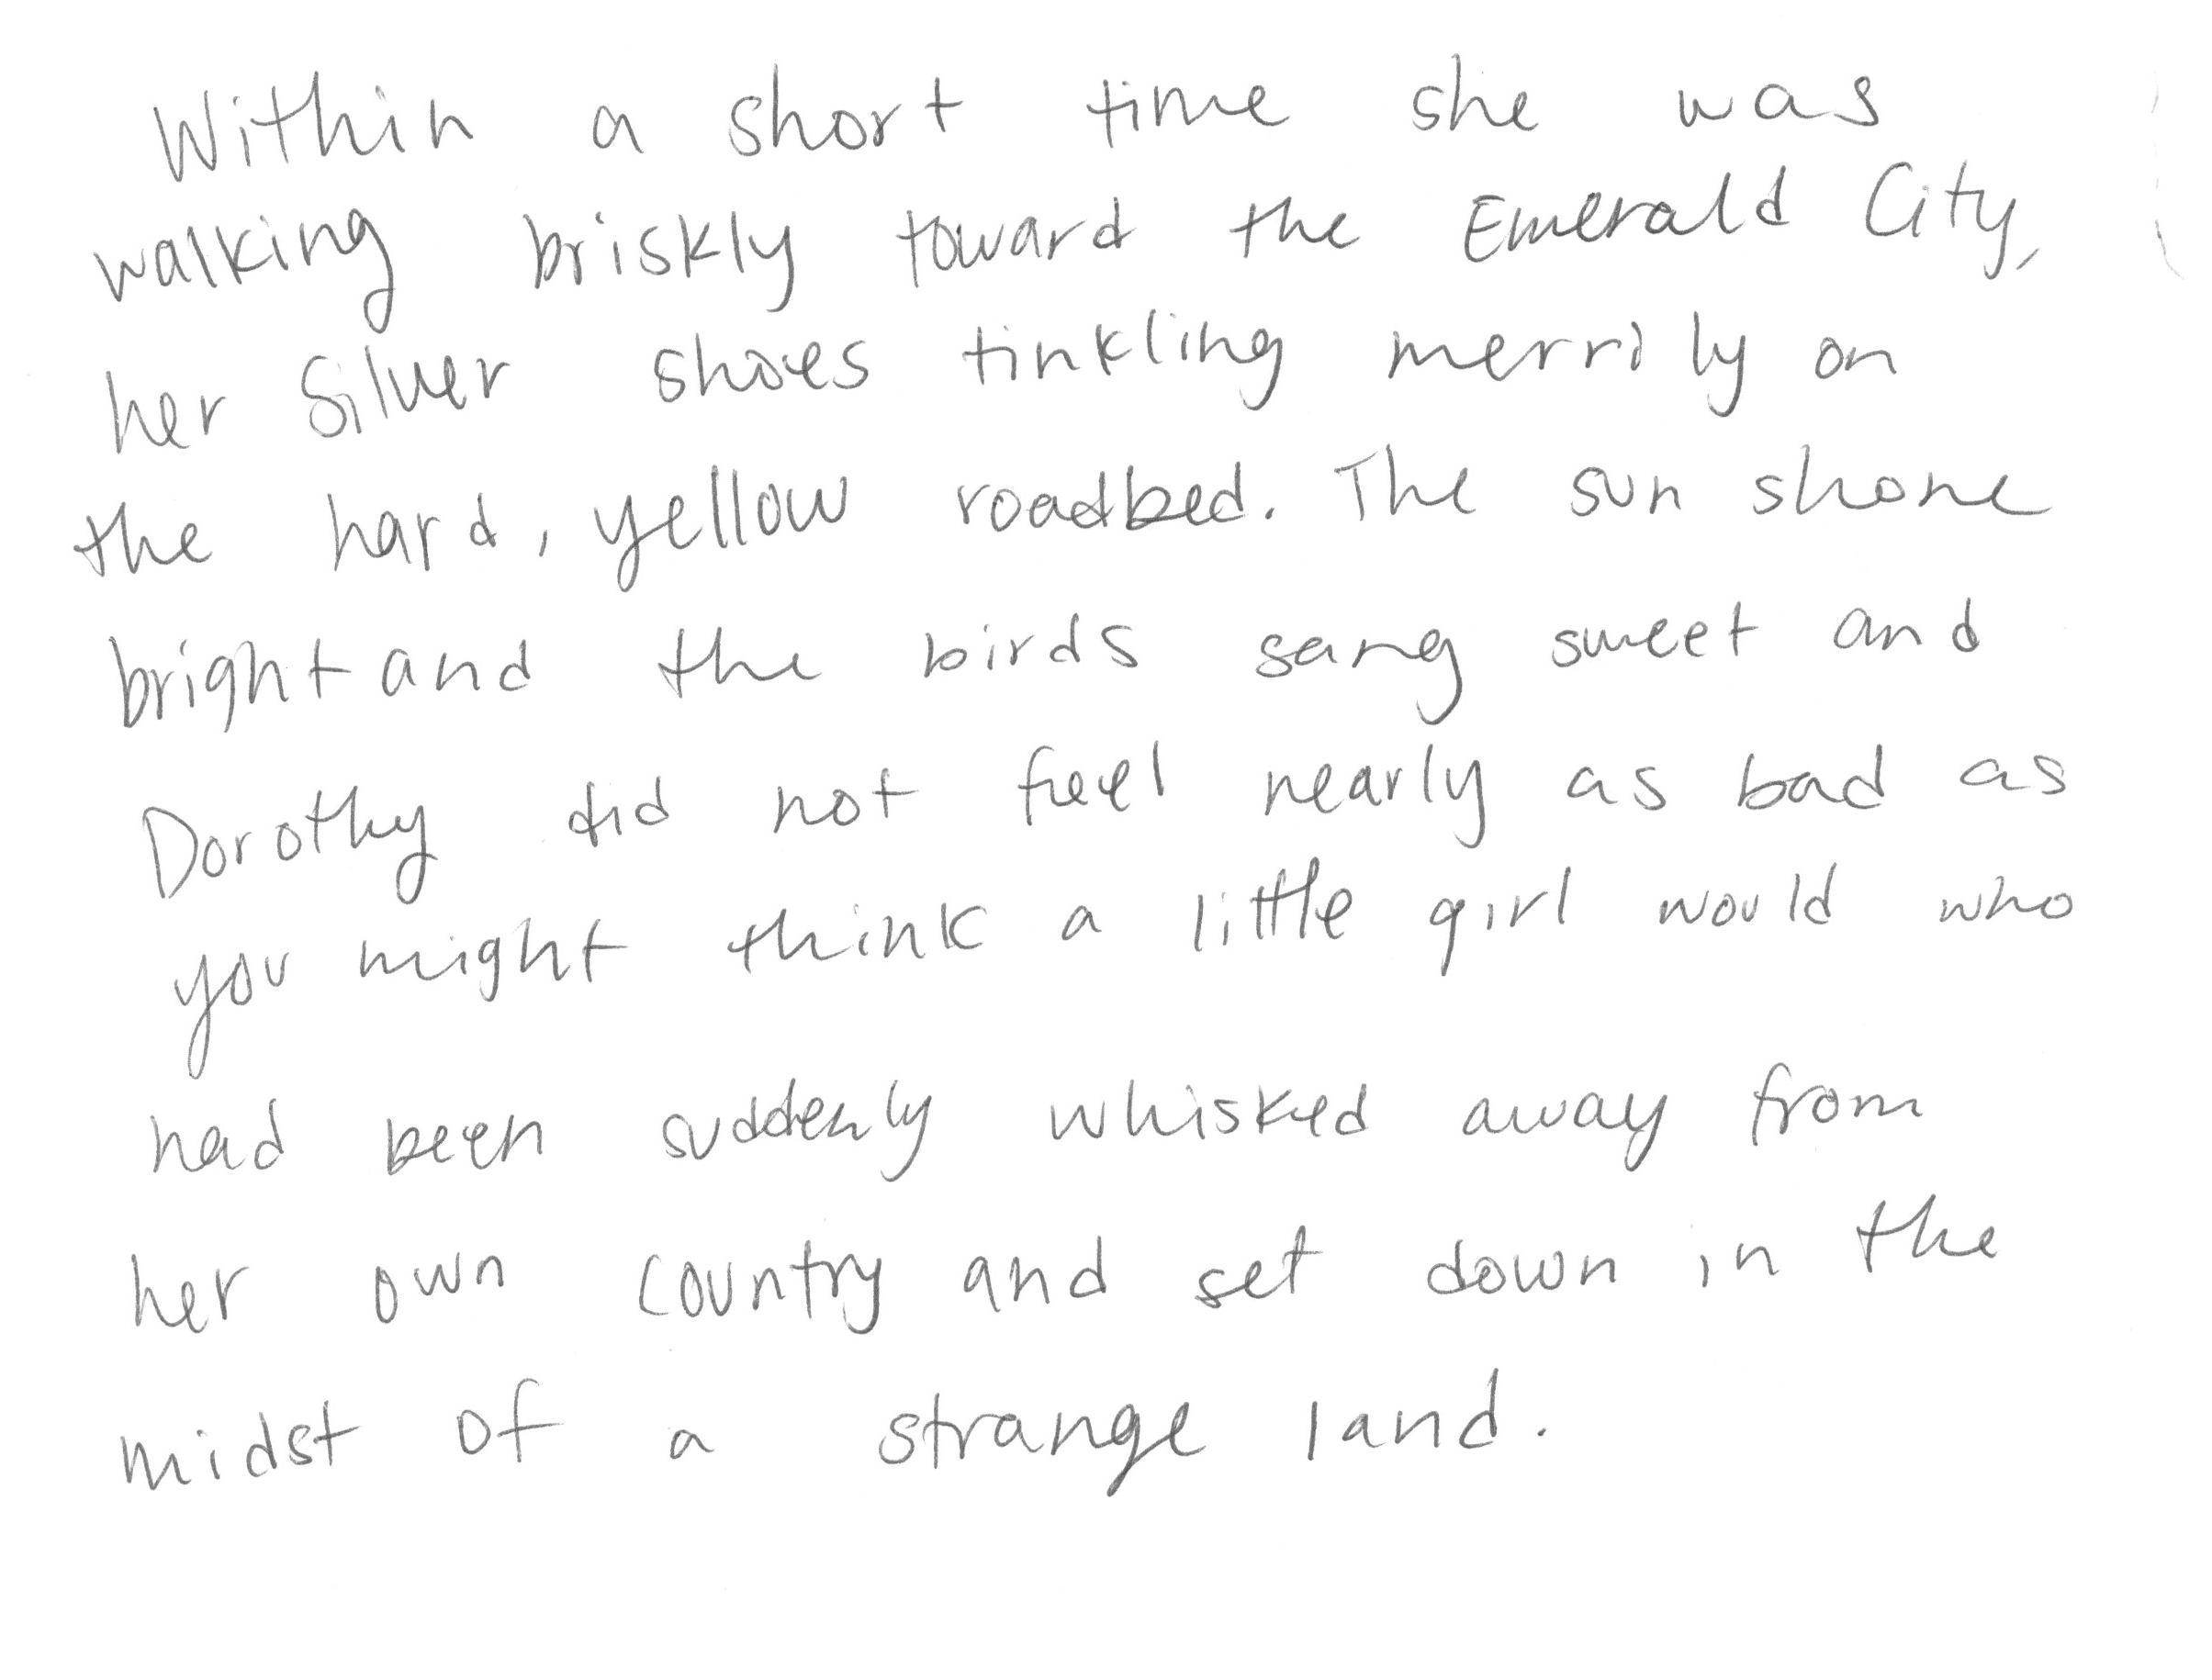 Within a short time she was
walking briskly toward the Emerald City,
her Silver shoes tinkling merrily on
the hard, yellow roadbed. The sun shone
bright and the birds sang sweet and
Dorothy did not feel nearly as bad as
you might think a little girl would who
had been suddenly whisked away from
her own country and set down in the
midst of a strange land.